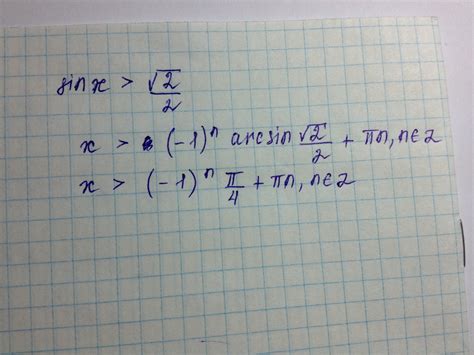 sin x > √2/2
x > (-1)ⁿ arcsin √2/2 + πn, n∈z
x > (-1)ⁿ π/4 + πn, n∈z